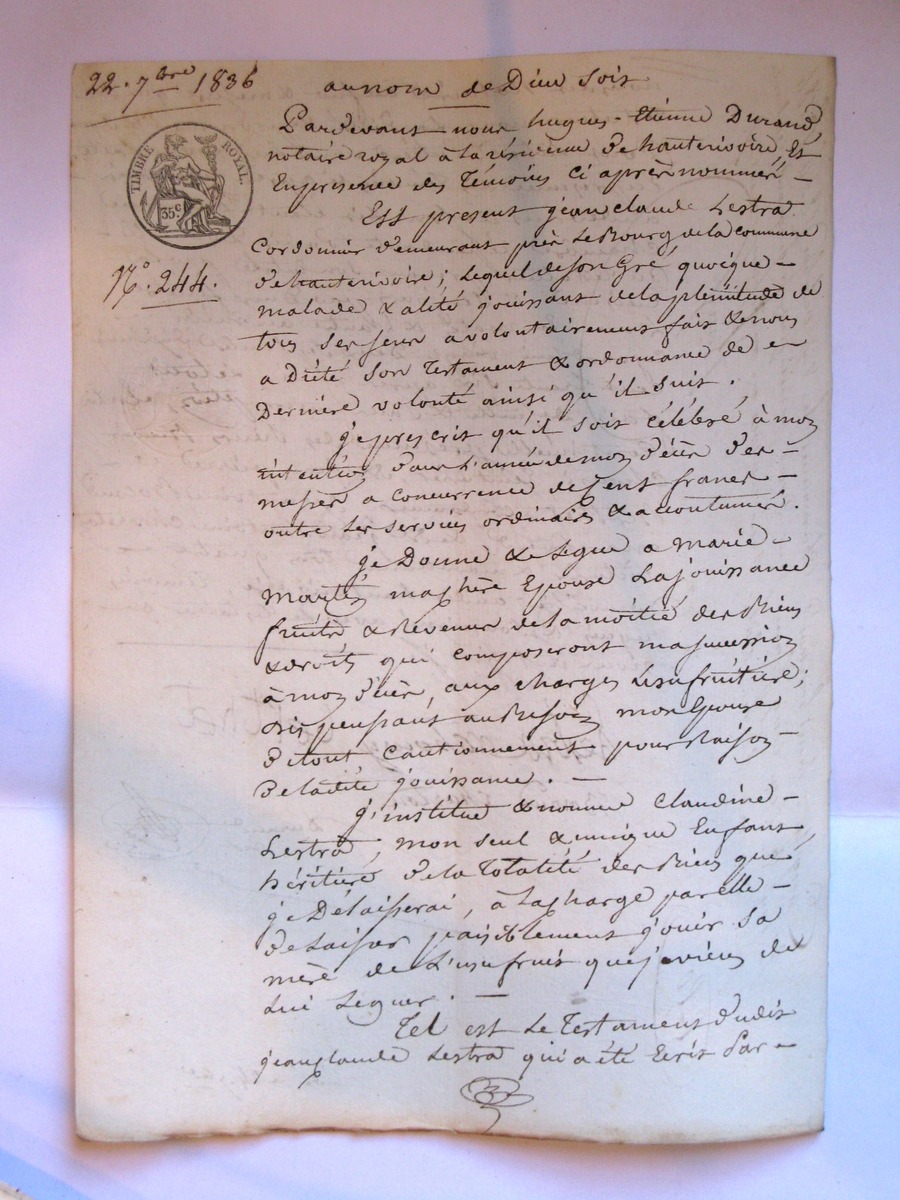 22. 7bre 1836
au nom de Dieu soit
TIMBRE ROYAL.
35c
N° 244.
Pardevant nous hugues-étienne Durand
notaire royal à la résidence de hauterivoire, Et
En présence des Témoins ci après nommés –
Est présent jean claude Lestra
Cordonnier demeurant près le Bourg de la commune
de hauterivoire; lequel de son Gré quoique –
malade & alité jouissant de la plénitude de
tous ses sens a volontairement fait & nous
a Dicté son Testament & ordonnance de
Dernière volonté ainsi qu'il suit.
je prescrit qu'il soit célébré à mon
intention dans l'année de mon décès des –
messes a concurrence de Cent francs –
outre les services ordinaires & accoutumés.
je Donne & Legue a Marie –
ma chère Epouse La jouissance
fruits & Revenus de la moitié des Biens
& droits qui composeront ma succession
à mon décès, aux charges de usufruitière;
Dispensant au Besoin mon Epouse
de tout cautionnement pour Raison –
de ladite jouissance. –
j'institue & nomme Claudine –
Lestra, mon seul & unique Enfant,
héritière de la Totalité des Biens que
je Délaisserai, à la charge par elle –
de Laisser paisiblement jouir sa
mère de L'usufruit que je viens de
Lui Leguer. –
Tel est Le Testament dudit
jean claude Lestra qui a été Ecrit Par –